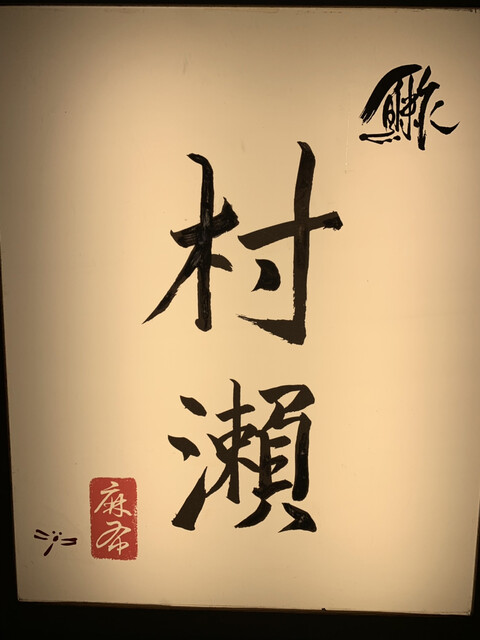 村瀬
麻布